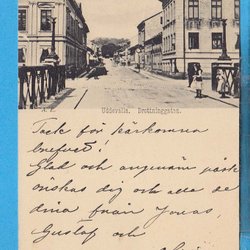 Uddevalla. Drottninggatan.
Tack för kärkomna
brefvet!
Glad och angenäm
önskas dig och alla de
dina från Jonas,
Gustaf och